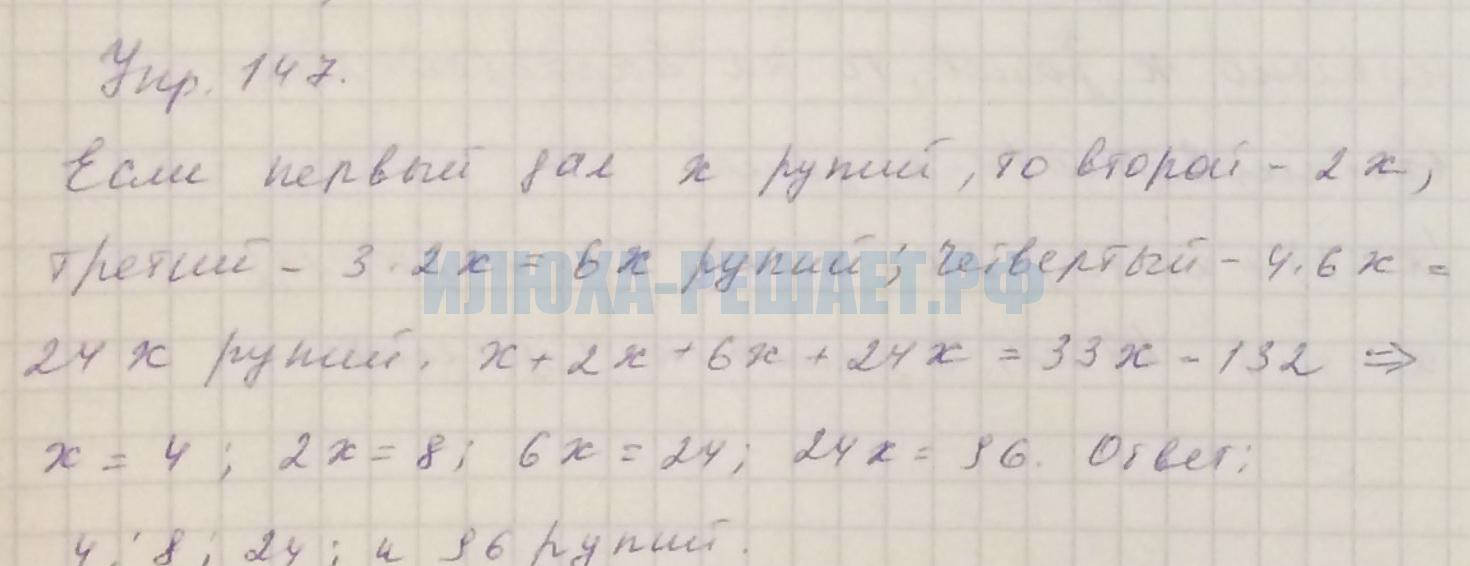 Упр. 147.
Если первый дал x рупий, то второй - 2x,
третий - 3·2x = 6x рупий; четвертый - 4·6x =
ИЛЮХА-РЕШАЕТ.РФ
24x рупий. x + 2x + 6x + 24x = 33x - 132 ⇒
x = 4; 2x = 8; 6x = 24; 24x = 96. Ответ:
4; 8; 24; и 96 рупий.